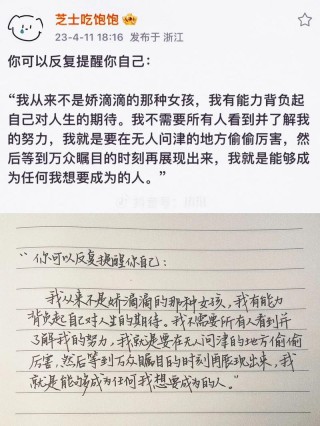 芝士吃饱饱
23-4-11 18:16 发布于 浙江
你可以反复提醒你自己：
“我从来不是娇滴滴的那种女孩，我有能力背负起
自己对人生的期待。我不需要所有人看到并了解我
的努力，我就是要在无人问津的地方偷偷厉害，然
后等到万众瞩目的时刻再展现出来，我就是能够成
为任何我想要成为的人。”
“你可以反复提醒你自己：
我从来不是娇滴滴的那种女孩，我有能力
背负起自己对人生的期待。我不需要所有人看到并
了解我的努力，我就是要在无人问津的地方偷偷
厉害，然后等到万众瞩目的时刻再展现出来，我
就是能够成为任何我想要成为的人。”